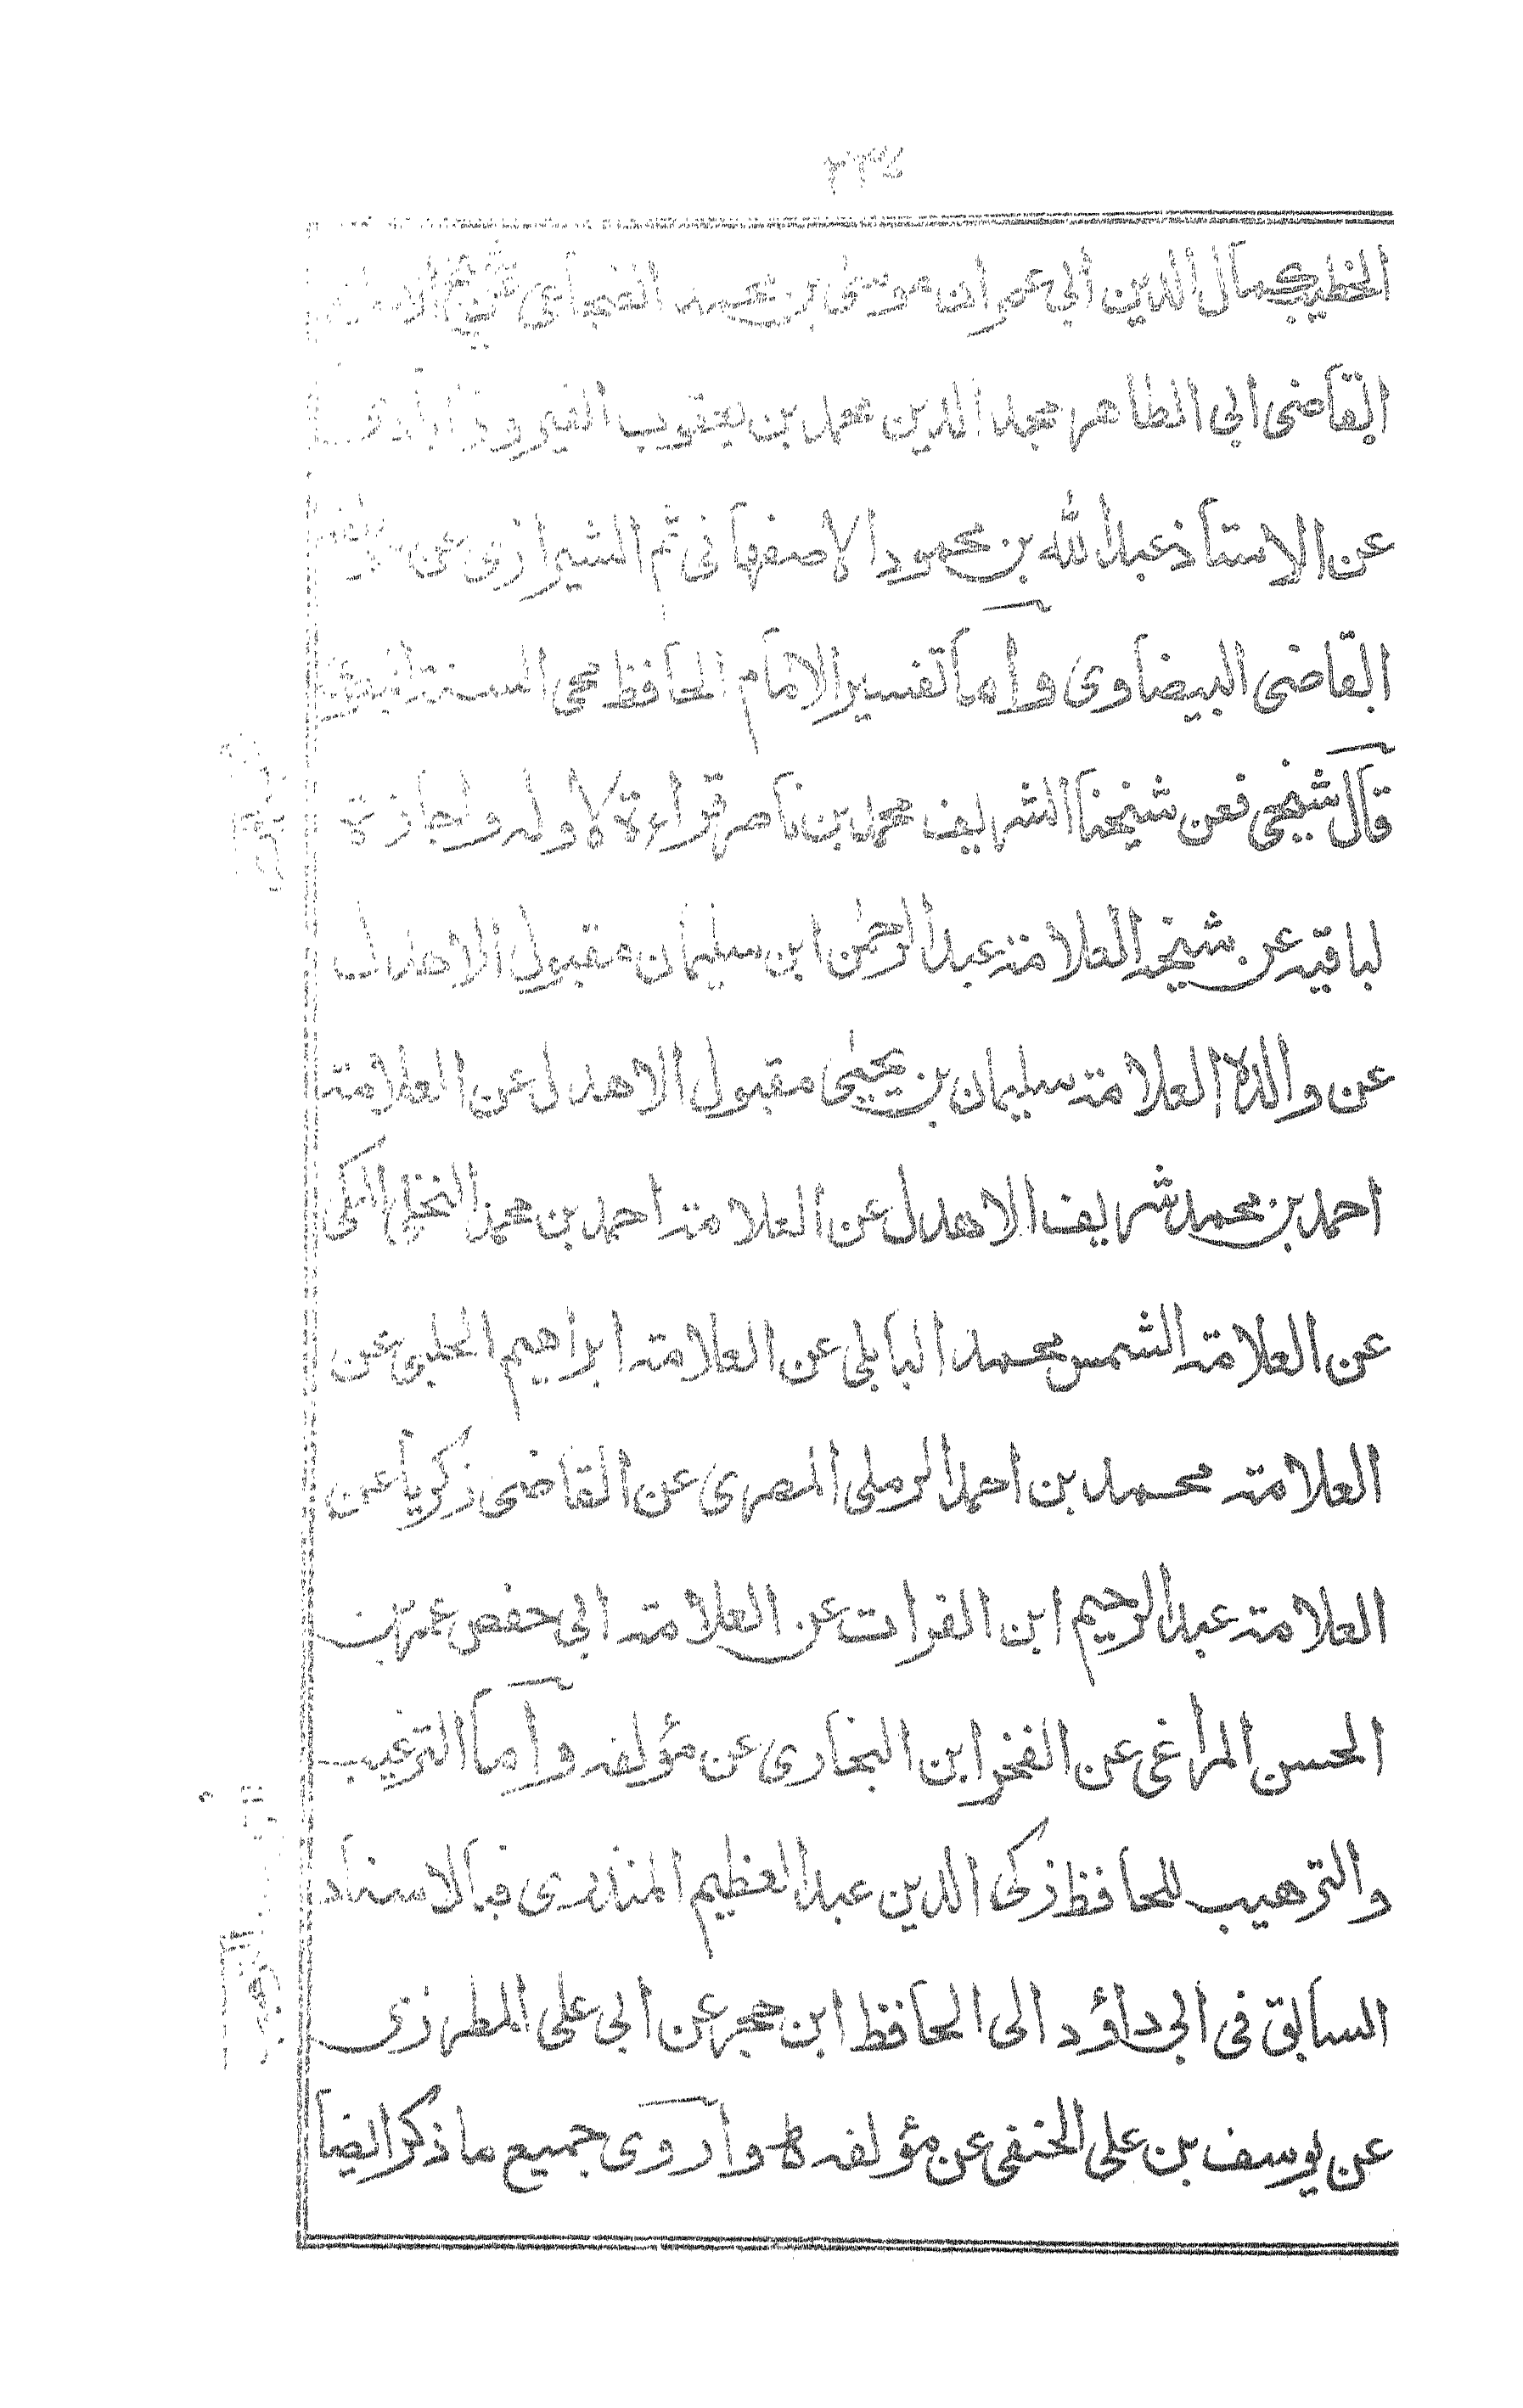 الخطيب كمال الدين ابي عمران موسى بن محمد الضجاعي عن
القاضى ابى الطاهر مجد الدين محمد بن يعقوب الفيروزابادى
عن الاستاذ عبد الله بن محمود الاصفهانى ثم الشيرازى عن
القاضى البيضاوى وأما تفسير الامام الحافظ محى السنة
قال شيخى فعن شيخنا الشريف محمد بن ناصر قراءة لاوله واجازة
لباقيه عن شيخه العلامة عبد الرحمٰن ابن سليمان مقبول الاهدل
عن والده العلامة سليمان بن يحيىٰ مقبول الاهدل عن العلامة
احمد بن محمد شريف الاهدل عن العلامة احمد بن محمد النخلى المكى
عن العلامة الشمس محمد البابلى عن العلامة ابراهيم الحلبى عن
العلامة محمد بن احمد الرملى المصرى عن القاضى زكريا عن
العلامة عبد الرحيم ابن الفرات عن العلامة ابى حفص عمر بن
الحسن المراغى عن الفخر ابن البخارى عن مؤلفه وأما الترغيب
والترهيب للحافظ زكى الدين عبد العظيم المنذرى فبالاسناد
السابق فى ابى داؤد الى الحافظ ابن حجر عن ابى على المطرزى
عن يوسف بن على الحنفى عن مؤلفه وأروى جميع ما ذكر ايضا